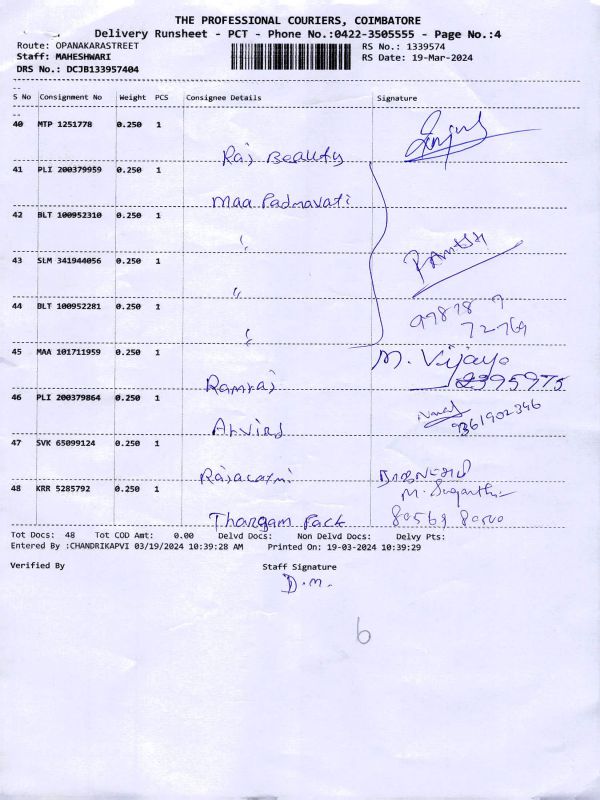 THE PROFESSIONAL COURIERS, COIMBATORE
Delivery Runsheet - PCT - Phone No.:0422-3505555 - Page No.:4
Route: OPANAKARASTREET RS No.: 1339574
Staff: MAHESHWARI RS Date: 19-Mar-2024
DRS No.: DCJB133957404
S No Consignment No Weight PCS Consignee Details Signature
40 MTP 1251778 0.250 1
Raj Beauty
41 PLI 200379959 0.250 1
Maa Padmavati
42 BLT 100952310 0.250 1
"
43 SLM 341944056 0.250 1
"
44 BLT 100952281 0.250 1
"
45 MAA 101711959 0.250 1 M. Vijaya
Ramraj
46 PLI 200379864 0.250 1
Arvind 9361902346
47 SVK 65099124 0.250 1
48 KRR 5285792 0.250 1 M. Suganthi
Thangam Pack
Tot Docs: 48 Tot COD Amt: 0.00 Delvd Docs: Non Delvd Docs: Delvy Pts:
Entered By :CHANDRIKAPVI 03/19/2024 10:39:28 AM Printed On: 19-03-2024 10:39:29
Verified By Staff Signature
D.M.
6